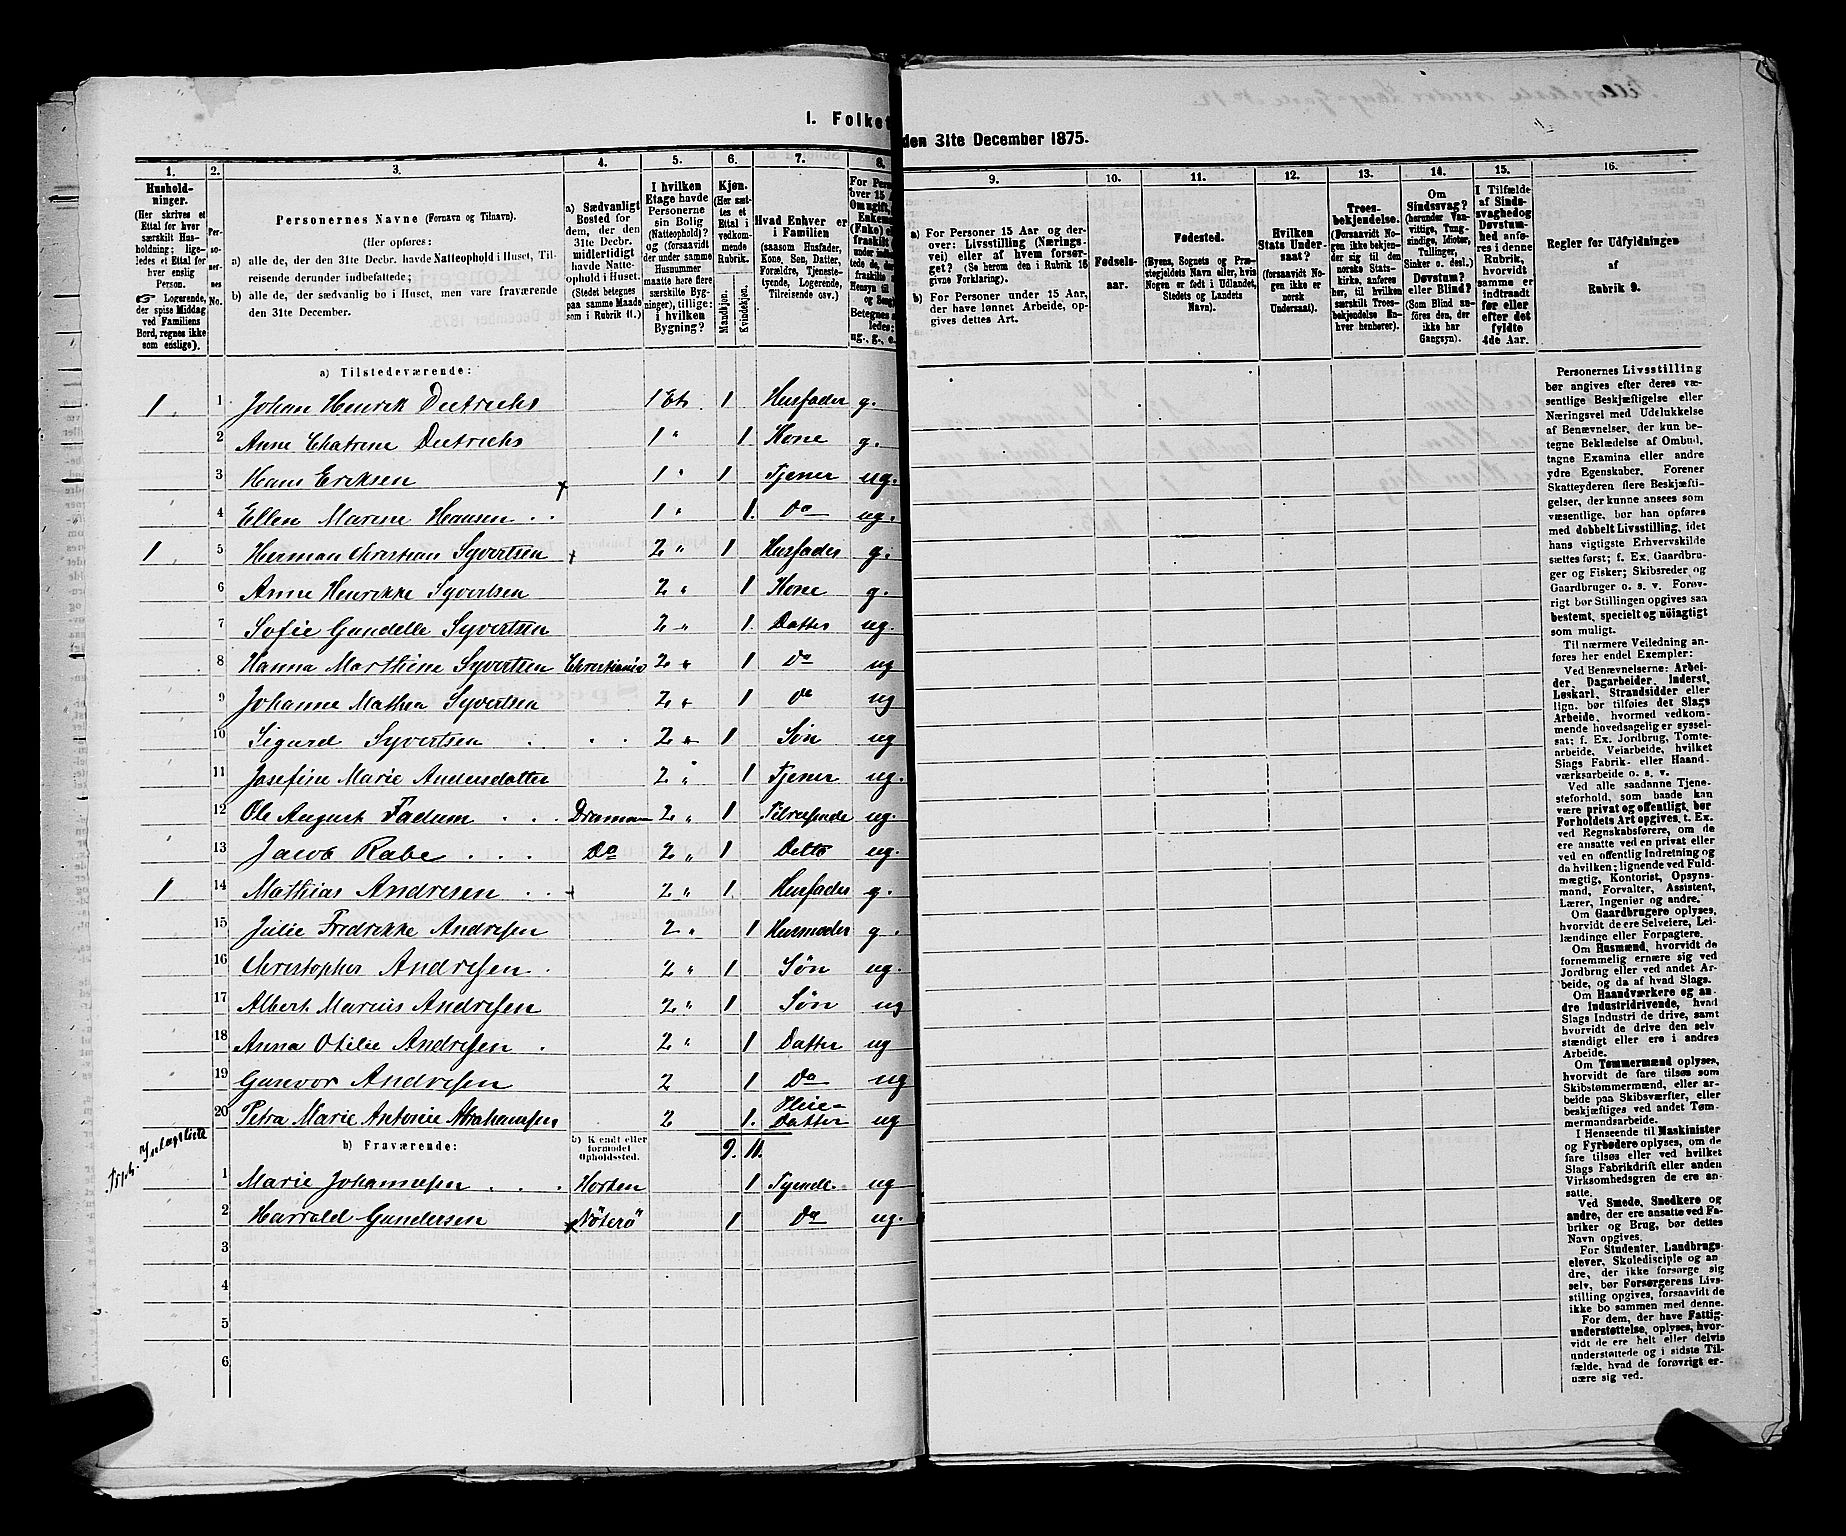 I. Folket
den 31te December 1875.
1. 2. 3. 4. 5. 6. 7. 8.
Husholdninger.
(Her skrives et
Ettal for hver
særskilt Husholdning; ligeledes
et Ettal for
hver enslig
Person.
Logerende,
der spise Middag
ved Familiens
Bord, regnes ikke
som enslige).
Personernes No.
Personernes Navne (Fornavn og Tilnavn).
(Her opføres:
a) alle de, der den 31te Decbr. havde Natteophold i Huset, Tilreisende
derunder indbefattede;
b) alle de, der sædvanlig bo i Huset, men vare fraværende
den 31te December.
a) Sædvanligt
Bosted for
dem, der den
31te Decbr.
midlertidigt
havde Natteophold
i Huset.
(Stedet betegnes
paa samme Maade
som i Rubrik 11.)
I hvilken
Etage havde
Personerne
sin Bolig
(Natteophold)?
og (forsaavidt
der under samme
Husnummer
maatte høre flere
særskilte Bygninger),
tillige:
i hvilken
Bygning?
Kjøn.
(Her sættes
et
Ettal i
vedkommende
Rubrik.
Mandkjøn.
Kvindekjøn.
Hvad Enhver er
i Familien
(saasom Husfader,
Kone, Søn, Datter,
Forældre, Tjenestetyende,
Logerende,
Tilreisende osv.)
a) Tilstedeværende:
1. 1 Johan Henrik Dietrichs 1 Et. 1 Husfader g.
2 Anne Chatrine Dietrichs 1 " 1 Kone g.
3 Hans Eriksen 1 " 1 Tjener ug.
4 Ellen Marine Hansen 1 " 1. Do ug.
1. 5 Herman Christian Syvertsen 2 " 1 Husfader g.
6 Anne Henrikke Syvertsen 2 " 1 Kone g.
7 Sofie Gundelle Syvertsen 2 " 1. Datter ug.
8 Hanna Marthine Syvertsen Christiania 2 " 1 Do ug
9 Johanne Mathea Syvertsen 2 " 1 Do ug
10 Sigurd Syvertsen 2 " 1 Søn ug
11 Josefine Marie Andersdatter 2 " 1 Tjener ug.
12 Ole August Fadum Dramen 2 " 1 Tilreisende ug.
13 Jacob Rabe Do 2 " 1 Detto ug.
1 14 Mathias Andresen 2 " 1. Husfader g.
15 Julie Fredrikke Andresen 2 " 1 Husmoder g.
16 Christopher Andresen 2 " 1 Søn ug.
17 Albert Marius Andresen 2 " 1 Søn ug
18 Anna Otilie Andresen 2 " 1 Datter ug
19 Gunvor Andresen 2 1 Do ug
20 Petra Marie Antonie Abrahamsen 2 1. Pleie-Datter ug
b) Fraværende:
b) Kjendt eller
formodet
Opholdssted.
9. 11.
1 Marie Johannesen Horten 1 Tyende ug
2 Harrald Gundersen Nöterö 1 Do ug.
3
4
5
6
9. 10. 11. 12. 13. 14. 15. 16.
a) For Personer 15 Aar og derover:
Livsstilling (Næringsvei)
eller af hvem forsørget?
(Se herom den i Rubrik 16
givne Forklaring).
b) For Personer under 15 Aar,
der have lønnet Arbeide, opgives
dettes Art.
Fødselsaar.
Fødested.
(Byens, Sognets og Præstegjeldets
Navn eller, hvis
Nogen er født i Udlandet,
Stedets og Landets
Navn).
Hvilken
Stats Undersaat?
(forsaavidt Nogen
ikke er
norsk
Undersaat).
Troesbekjendelse.
(Forsaavidt Nogen
ikke bekjender
sig til den
norske Statskirke,
anføres
her, til hvilken
særskilt Troesbekjendelse
Enhver
henhører).
Om
Sindssvag?
(herunder Vanvittige,
Tungsindige,
Idioter,
Tullinger,
Sinker o. desl.)
Døvstum?
eller Blind?
(Som Blind anføres
den, der
ikke har
Gangsyn).
I Tilfælde
af Sindssvaghed
og
Døvstumhed
anføres
i denne
Rubrik,
hvorvidt
samme er
indtraadt
før eller
efter det
fyldte
4de Aar.
Regler for Udfyldningen
af
Rubrik 9.
Personernes Livsstilling
bør angives efter deres væsentlige
Beskjæftigelse eller
Næringsvei med Udelukkelse
af Benævnelser, der kun betegne
Beklædelse af Ombud,
tagne Examina eller andre
ydre Egenskaber. Forener
Skatteyderen flere Beskjæftigelser,
der kunne ansees som
væsentlige, bør han opføres
med dobbelt Livsstilling, idet
hans vigtigste Erhvervskilde
sættes først; f. Ex. Gaardbruger
og Fisker; Skibsreder og
Gaardbruger o. s. v. Forøvrigt
bør Stillingen opgives saa
bestemt, specielt og nöiagtigt
som muligt.
Til nærmere Veiledning anføres
her endel Exempler:
Ved Benævnelserne: Arbeider,
Dagarbeider, Inderst,
Løskarl, Strandsidder eller
lign. bør tilføies det Slags
Arbeide, hvormed vedkommende
hovedsagelig er sysselsat;
f. Ex. Jordbrug, Tomtearbeide,
Veiarbeide, hvilket
Slags Fabrik- eller Haandværksarbeide
o. s. v.
Ved alle saadanne Tjenesteforhold,
som baade kan
være privat og offentligt, bør
Forholdets Art opgives, t. Ex.
ved Regnskabsførere, om de
ere ansatte ved en privat eller
ved en offentlig Indretning og
da hvilken; lignende ved Fuldmægtig,
Kontorist, Opsynsmand,
Forvalter, Assistent,
Lærer, Ingeniør og andre.
Om Gaardbrugere oplyses,
hvorvidt de ere Selveiere, Leilændinge
eller Forpagtere.
Om Husmænd, hvorvidt de
fornemmelig ernære sig ved
Jordbrug eller ved andet Arbeide,
og da af hvad Slags.
Om Haandværkere og andre
Industridrivende, hvad
Slags Industri de drive, samt
hvorvidt de drive den selvstændigt
eller ere i andres
Arbeide.
Om Tømmermænd oplyses,
hvorvidt de fare tilsøs som
Skibstømmermænd, eller arbeide
paa Skibsværfter, eller
beskjæftiges ved andet Tømmermandsarbeide.
I Henseende til Maskinister
og Fyrbødere oplyses, om de
fare tilsøs eller ved hvilket
Slags Fabrikdrift eller anden
Virksomhedsgren de ere ansatte.
Ved Smede, Snedkere og
andre, der ere ansatte ved Fabriker
og Brug, bør dettes
Navn opgives.
For Studenter, Landbrugselever,
Skoledisciple og andre,
der ikke forsørge sig
selv, bør Forsørgerens Livsstilling
opgives, forsaavidt de
ikke bo sammen med denne.
For dem, der have Fattigunderstøttelse,
oplyses, hvorvidt
de ere helt eller delvis
understøttede og i sidste Tilfælde,
hvad de forøvrigt ernære
sig ved.